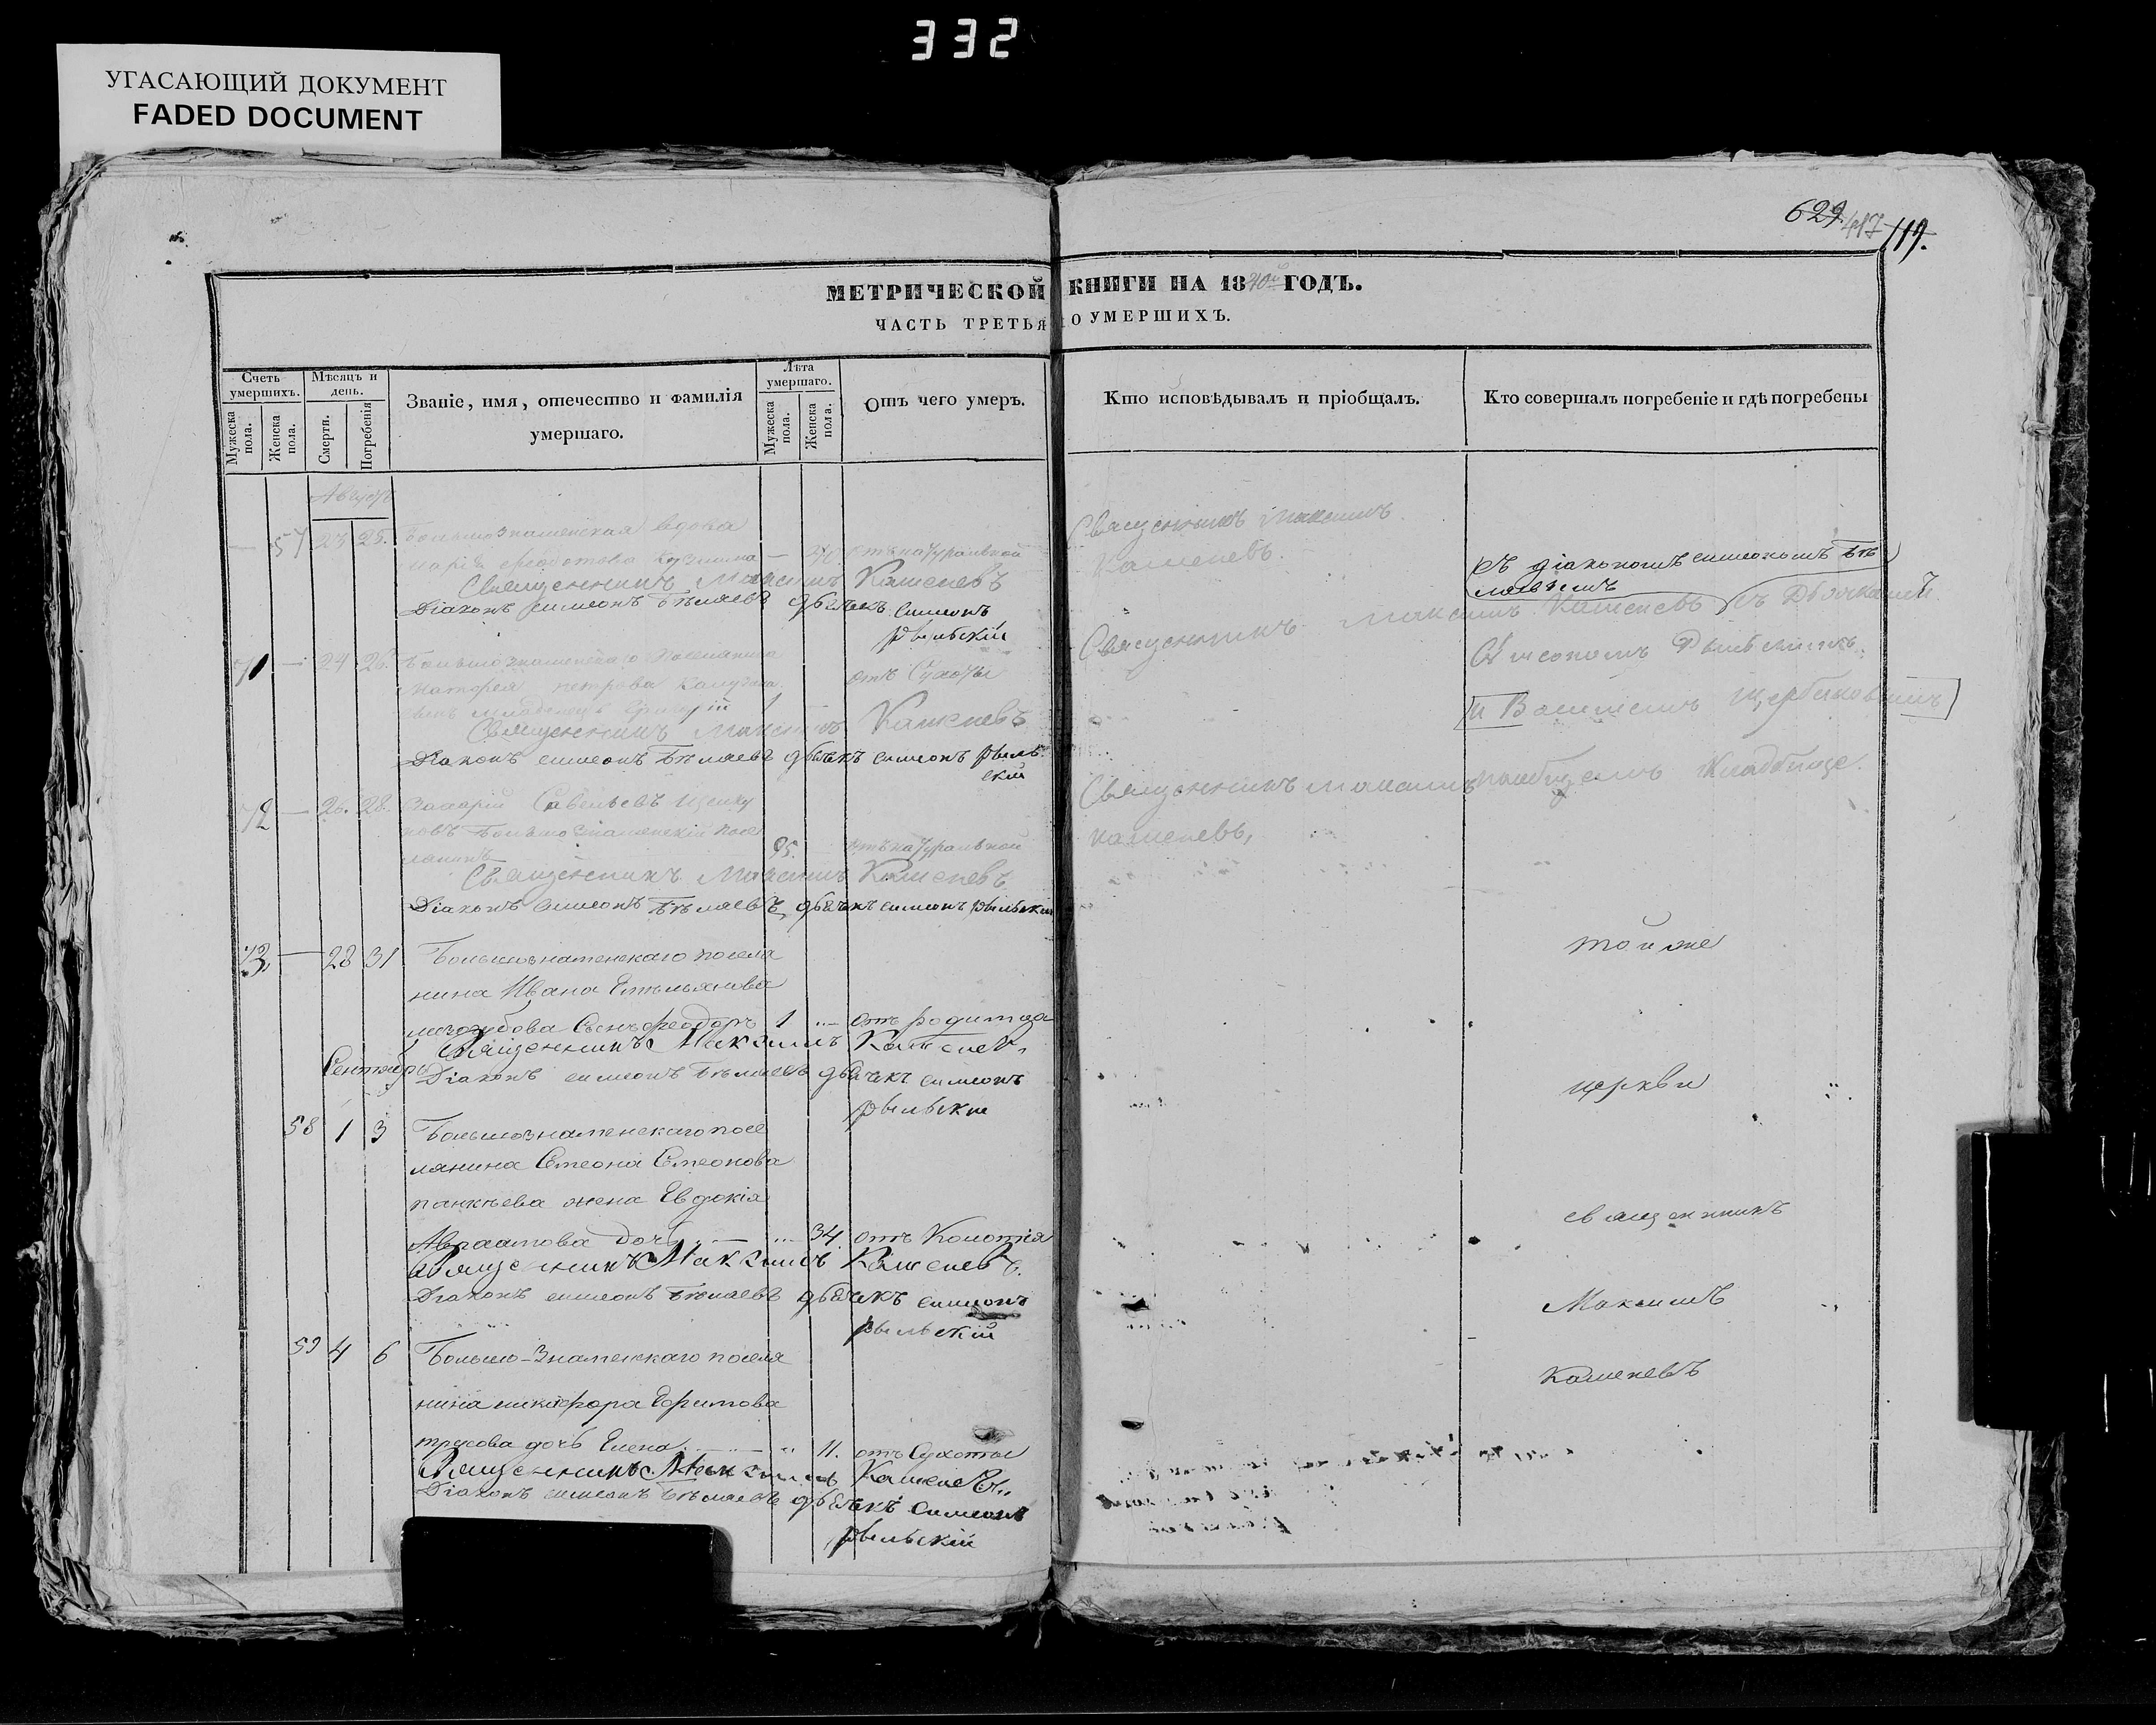 332
УГАСАЮЩИЙ ДОКУМЕНТ
FADED DOCUMENT
629. 417 119.
МЕТРИЧЕСКОЙ КНИГИ НА 1840й ГОДЪ.
ЧАСТЬ ТРЕТЬЯ О УМЕРШИХЪ.
Счетъ умершихъ.
Мужеска пола.
Женска пола.
Мѣсяцъ и день.
Смерти.
Погребенія
Званіе, имя, отечество и фамилія умершаго.
Лѣта умершаго.
Мужеска пола.
Женска пола.
Отъ чего умеръ.
Кто исповѣдывалъ и пріобщалъ.
Кто совершалъ погребеніе и гдѣ погребены
Августъ
57 23 25. Большознаменская вдова
Марія Федотова — 70 отъ натуральной
Священникъ Максимъ Каменевъ
Діаконъ Симеонъ Бѣляевъ дьячекъ Симеонъ
Рыльскій
71 — 24 26. Большознаменскаго поселянина
петрова отъ Сухоты
сынъ младенецъ Григорій 1
Священникъ Максимъ Каменевъ
Діаконъ Симеонъ Бѣляевъ дьячекъ Симеонъ Рыль
скій
72 — 26. 28. Захарій Савельевъ
новъ Большознаменскій посе
лянинъ 95. отъ натуральной
Священникъ Максимъ Каменевъ
Діаконъ Симеонъ Бѣляевъ дьячекъ Симеонъ Рыльскій
73 — 28 31 Большознаменскаго поселя
нина Ивана Емельянова
лизогубова сынъ Феодоръ 1 отъ родимца
Священникъ Максимъ Каменевъ
Сентябрь
Діаконъ Симеонъ Бѣляевъ дьячекъ Симеонъ
Рыльскій
58 1 3 Большознаменскаго посе
лянина Симеона Симеонова
панкѣева жена Евдокія
Авраамова дочь 34 отъ Колотія
Священникъ Максимъ Каменевъ
Діаконъ Симеонъ Бѣляевъ дьячекъ Симеонъ
Рыльскій
59 4 6 Большо-Знаменскаго поселя
нина никифора Ефимова
трусова дочь Елена 11. отъ Сухоты
Священникъ Максимъ Каменевъ
Діаконъ Симеонъ Бѣляевъ дьячекъ Симеонъ
Рыльскій
Священникъ Максимъ
Каменевъ.
Съ діакономъ Симеономъ Бѣ
ляевымъ
Священникъ Максимъ Каменевъ съ Дьячками
Симеономъ Рыльскимъ
и Василіемъ Щербаковымъ
Священникъ Максимъ
Каменевъ,
Кладбище.
той же
церкви
священникъ
Максимъ
Каменевъ